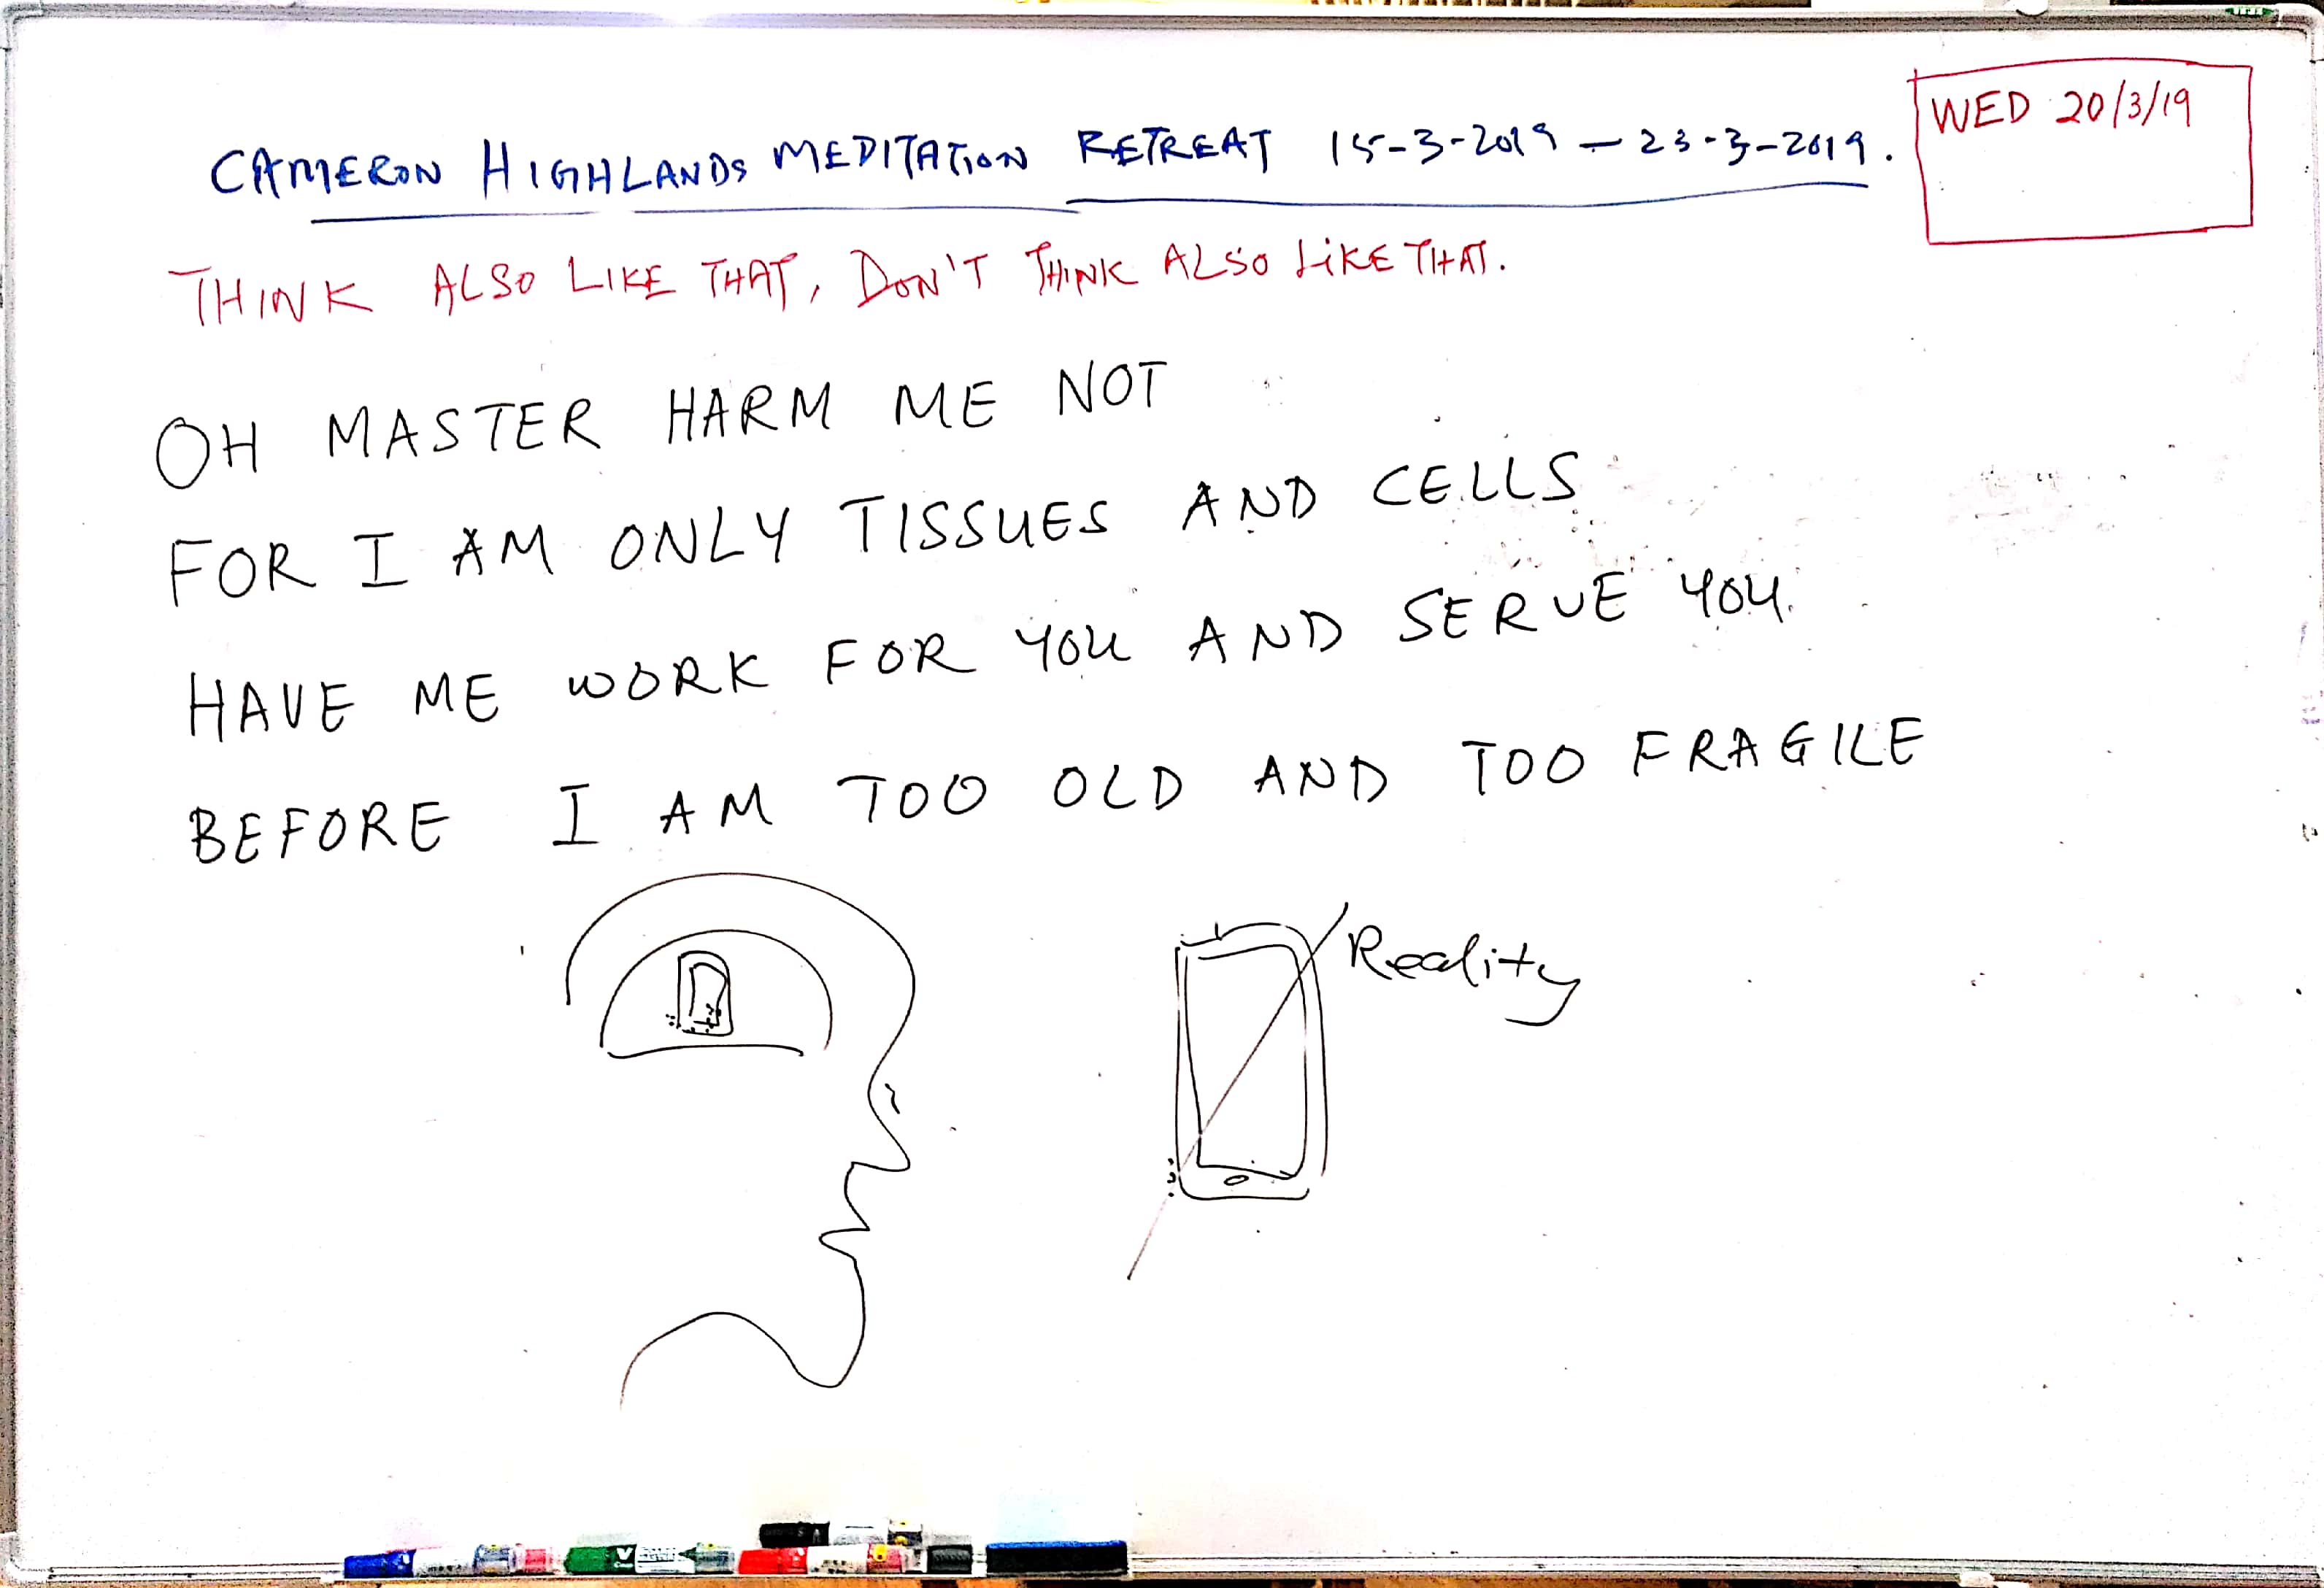 WED 20/3/19
CAMERON HIGHLANDS MEDITATION RETREAT 15-3-2019 - 23-3-2019.
THINK ALSO LIKE THAT, DON'T THINK ALSO LIKE THAT.
OH MASTER HARM ME NOT
FOR I AM ONLY TISSUES AND CELLS
HAVE ME WORK FOR YOU AND SERVE YOU
BEFORE I AM TOO OLD AND TOO FRAGILE
Reality